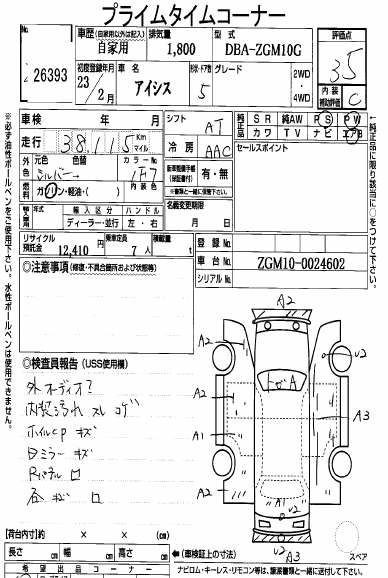 プライムタイムコーナー
No.
26393
車歴(自家用以外は記入)
自家用
排気量
1,800
型式
DBA-ZGM10G
評価点
3.5
初度登録年月
23
2月
車名
アイシス
形状・ドア数
5
グレード
2WD
4WD
内装
補助評価
C
車検
年 月
シフト
AT
純正品
SR 純AW PS PW
カワ TV ナビ エアB
走行
38,115
Km
マイル
冷房
AAC
セールスポイント
元色 色替 カラーNo.
シルバー→
1F7
燃料
ガソリン・軽油・( )
内装色
有・無
*書類と一緒に後日送付
名義変更期限
月 日
輸入車
年式 輸入区分 ハンドル
ディーラー・並行 左・右
リサイクル預託金
12,410 円
乗車定員
7 人
積載量
t
登録No.
車台No.
ZGM10-0024602
シリアルNo.
◎注意事項(修復・不具合箇所および状態等)
◎検査員報告(USS使用欄)
外オーディオ?
内装汚れ スレ コゲ
ホイルCP キズ
Dミラー キズ
Rパネル ロ
各キズ ロ
A2
A2
A2
A1
A2
U2
A3
トビA
A1
U2
U2
A3
スペア
【荷台内寸】 × × (cm)
長さ cm 幅 cm 高さ cm
◀(車検証上の寸法)
希望出品コーナー
ナビロム・キーレス・リモコン等は、譲渡書類と一緒に送付して下さい。
※必ず油性ボールペンをご使用下さい。水性ボールペンは使用できません。
←純正品に限り該当に○をつけて下さい。